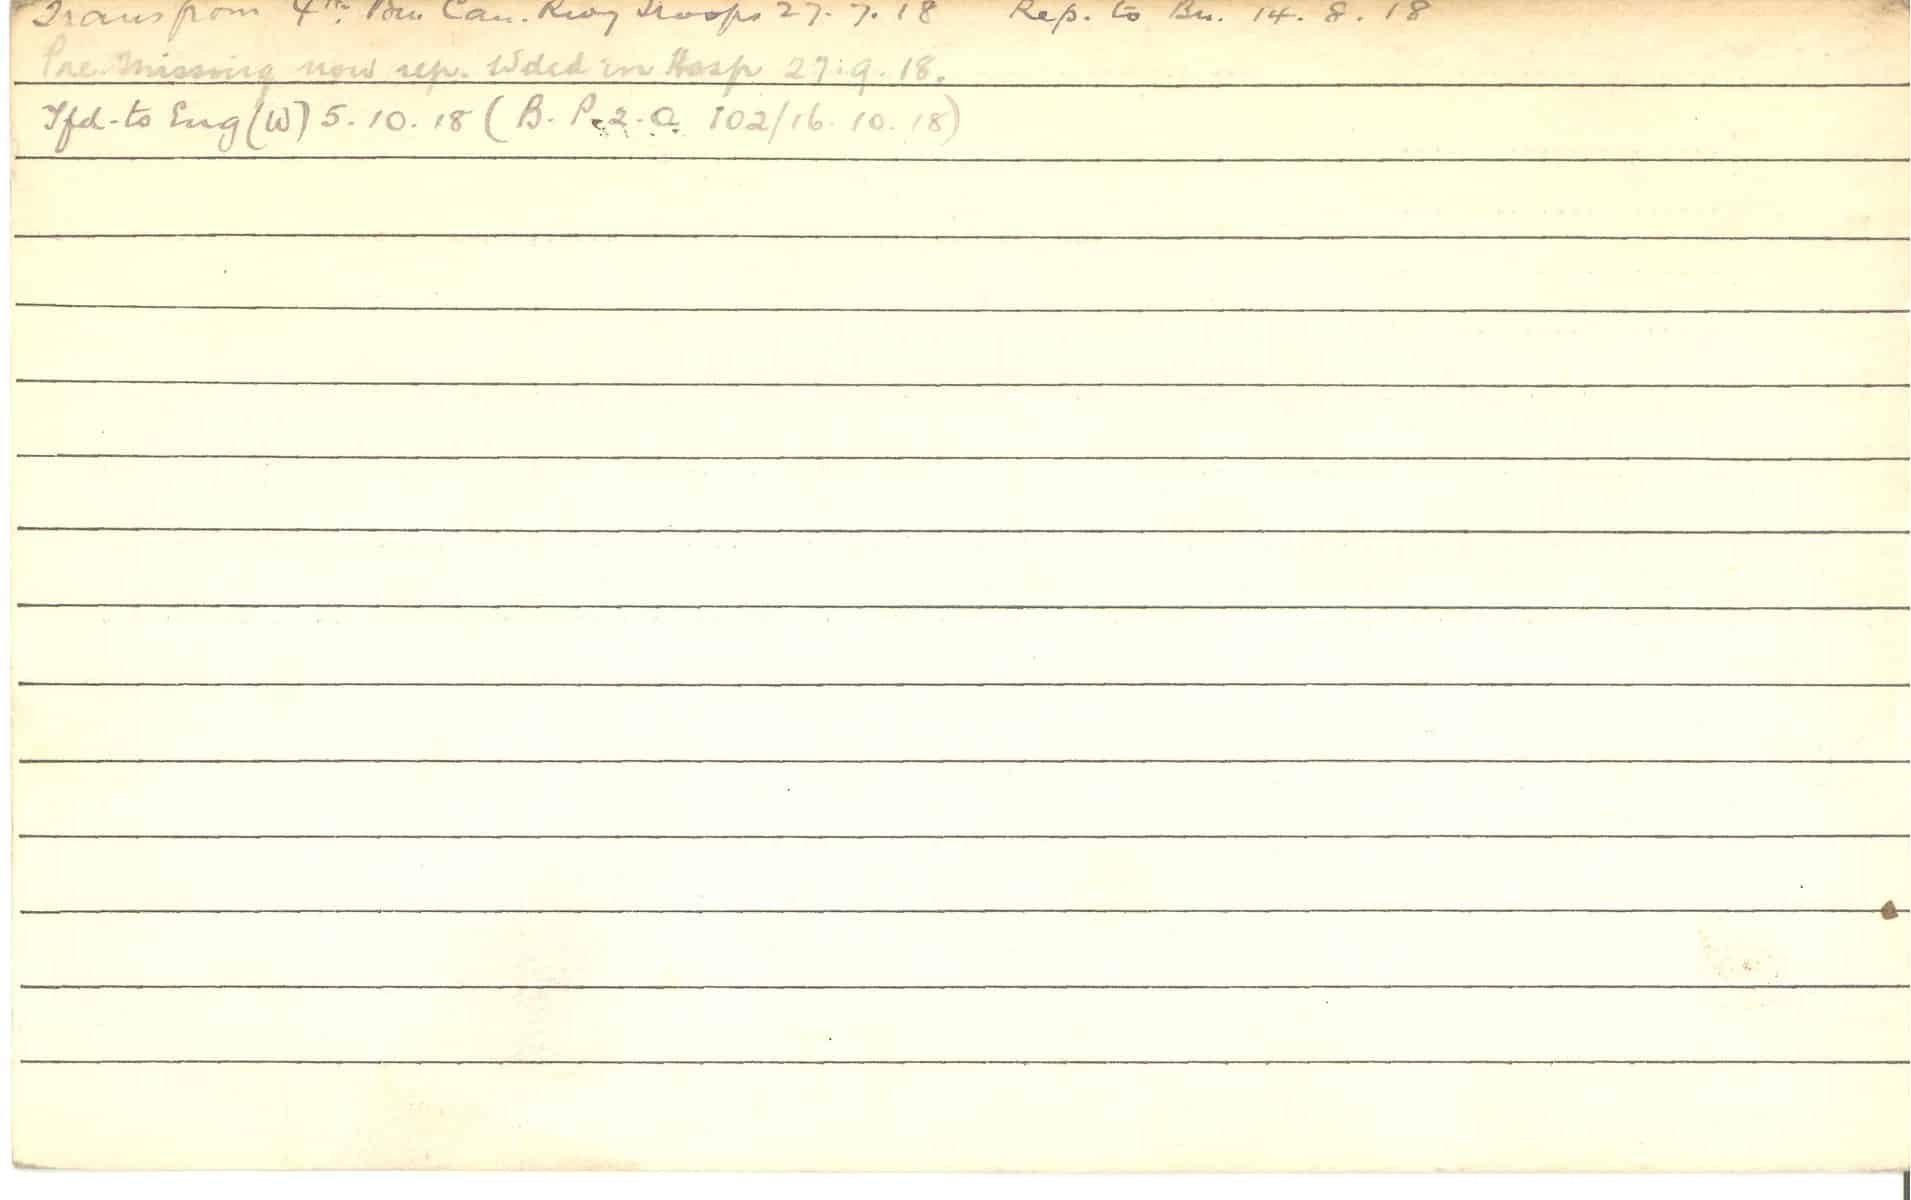 Trans from 4th Bn. Can. Rwy Troops 27. 7. 18 Rep. to Bn. 14. 8. 18
Pre. Missing now rep. Wded in Hosp 27.9.18.
Tfd-to Eng (W) 5.10.18 (B. P.2.O. 102/16.10.18)